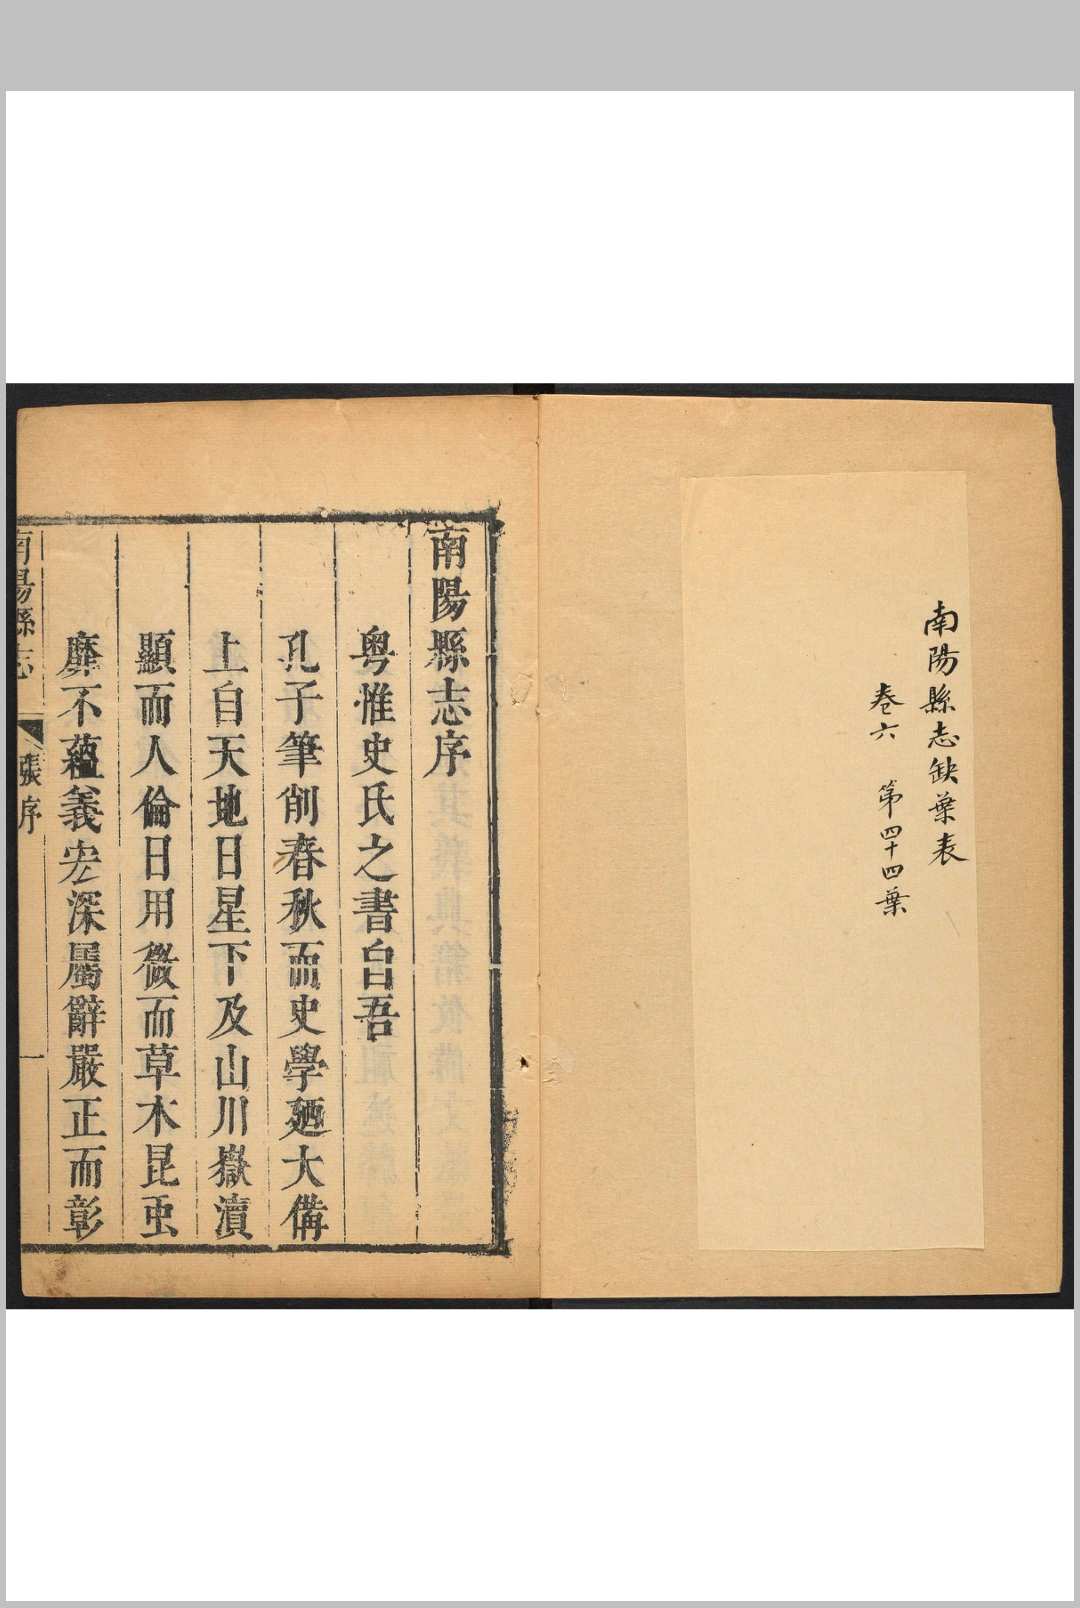 南陽縣志缺葉表
卷六　第四十四葉
南陽縣志序
粤惟史氏之書自吾
孔子筆削春秋而史學廼大備
上自天地日星下及山川嶽瀆
顯而人倫日用微而草木昆虫
靡不蘊義宏深屬辭嚴正而彰
南陽縣志　張序　一